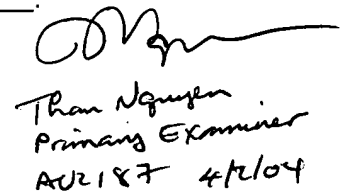 Than Nguyen
Primary Examiner
AU2187 4/2/04